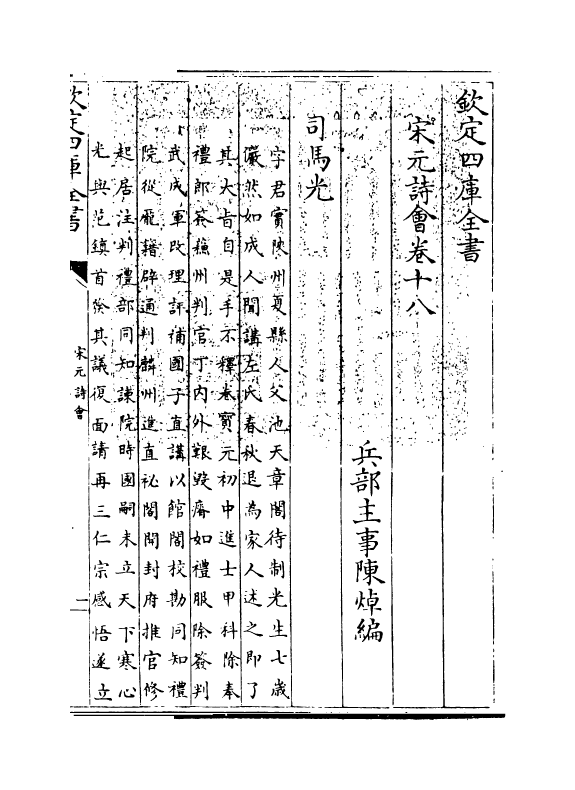 欽定四庫全書
宋元詩會卷十八
兵部主事陳焯編
司馬光
字君實陝州夏縣人父池天章閣待制光生七歲
儼然如成人聞講左氏春秋退為家人述之即了
其大㫖自是手不釋卷寶元初中進士甲科除奉
禮郎簽蘇州判官丁內外艱毀瘠如禮服除簽判
武成軍改理評補國子直講以館閣校勘同知禮
院從龎籍辟通判麟州進直祕閣開封府推官修
起居注判禮部同知諫院時國嗣未立天下寒心
光與范鎮首發其議復面請再三仁宗感悟遂立
欽定四庫全書
宋元詩會
一